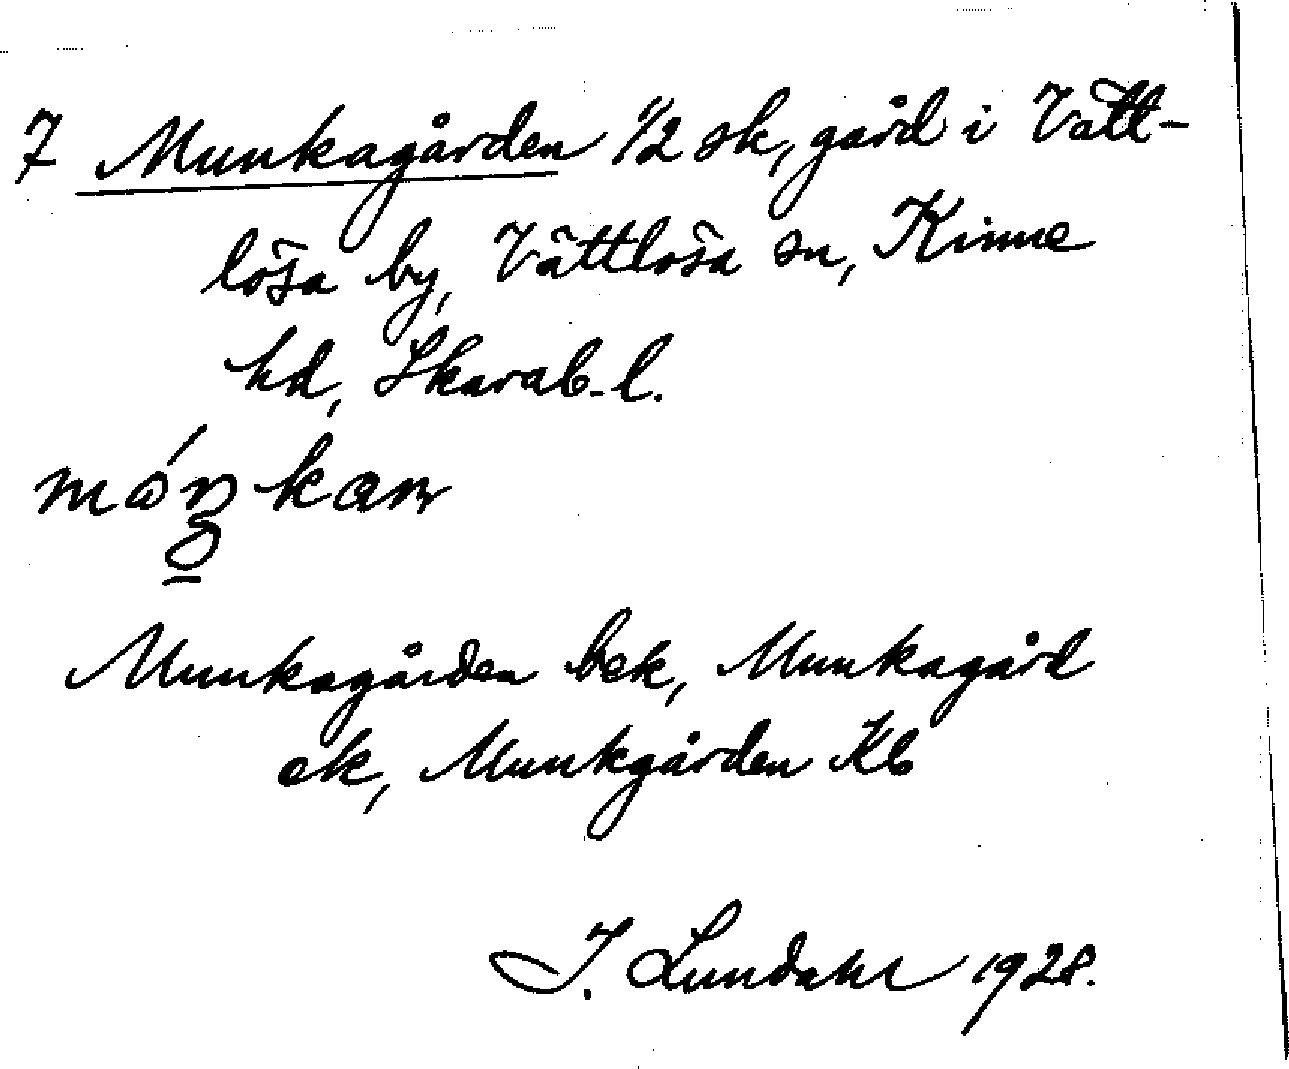 7 Munkagården 1/2 sk, gård i Vätt-
lösa by, Vättlösa sn, Kinne
hd, Skarab. l.
Munkagården bek, Munkagård
ek, Munkgården Kb
I. Lundahl 1928.